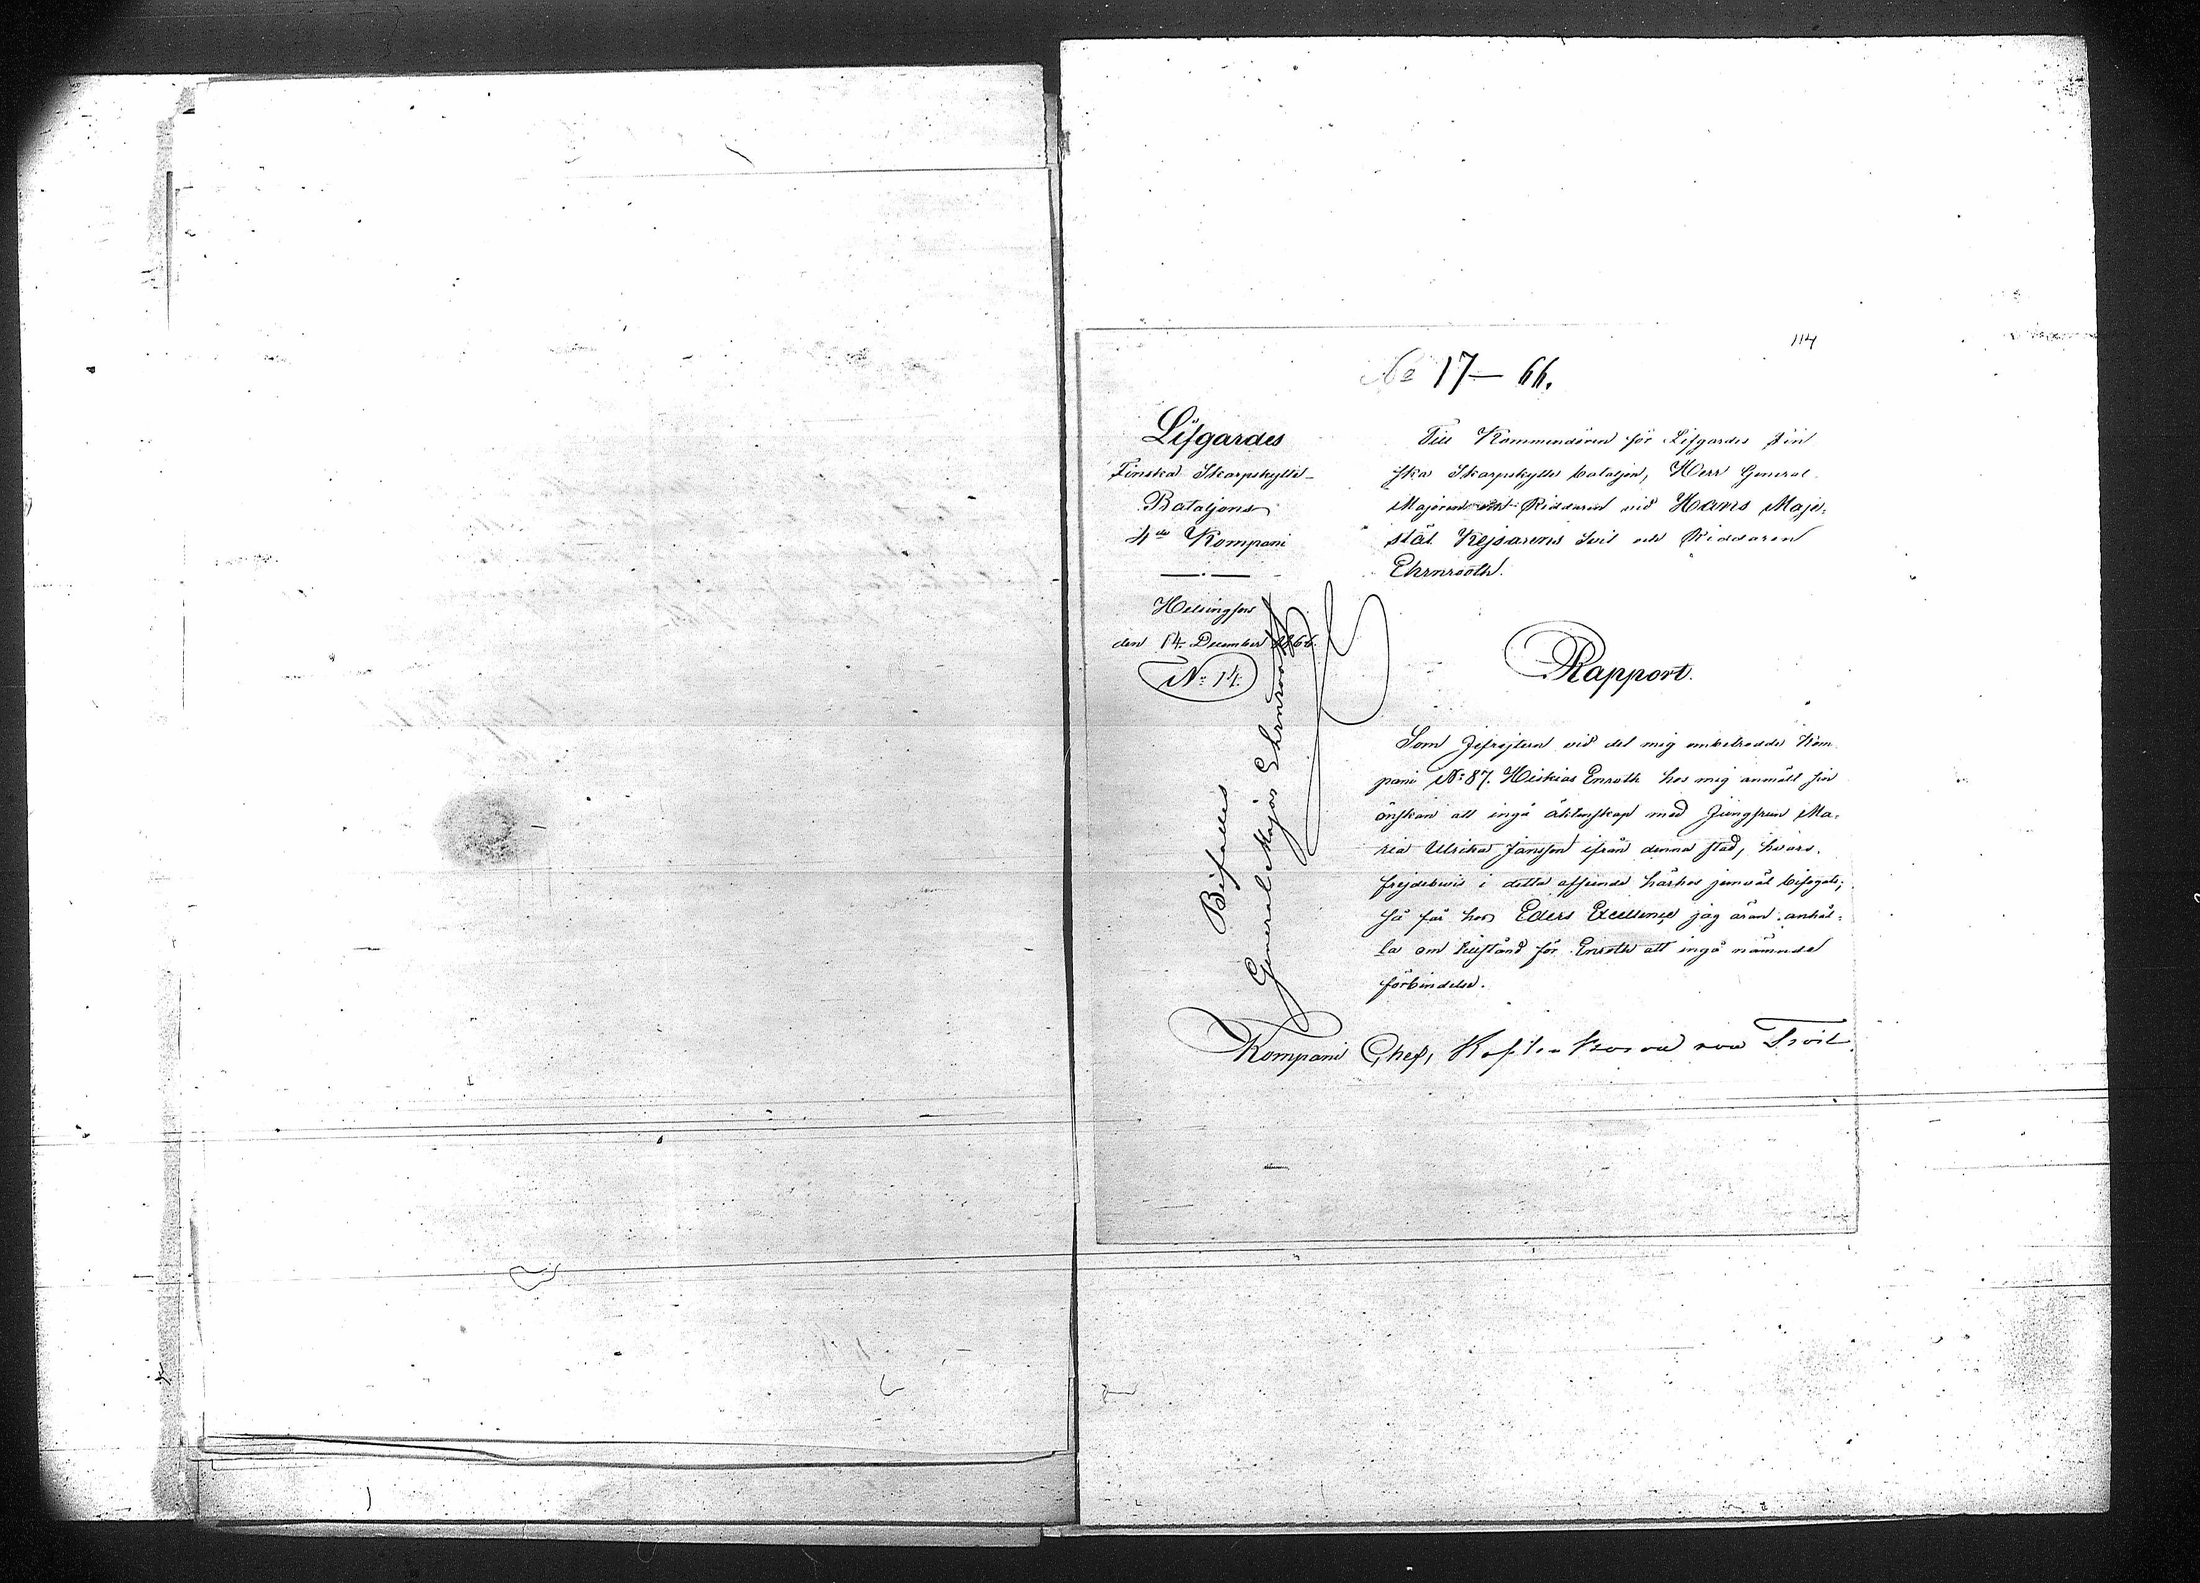 114
No 17 — 66.
Lifgardes
Finska Skarpskytte-
Bataljons
4de Kompani
Helsingfors
den 14 December 1866.
No 14.
Till Kommendören för Lifgardes Fin
ska Skarpskytte bataljon, Herr General
Majoren vid Hans Maje-
stät Kejsarens Svit och Riddaren
Ehrnrooth.
Rapport.
Som Jefrejtern vid det mig anbetrodde Kom
pani No 87. Hiskias Enroth hos mig anmält sin
önskan att ingå äktenskap med Jungfrun Ma-
ria Ulrika Jansson ifrån denna stad, hvars
frejdebevis i detta afseende härhos jemväl bifogats;
så får hos Eders Excellence jag äran anhål-
la om tillstånd för Enroth att ingå nämnde
förbindelse.
Kompani Chef, von Troil
Bifalles
General Major Ehrnrooth